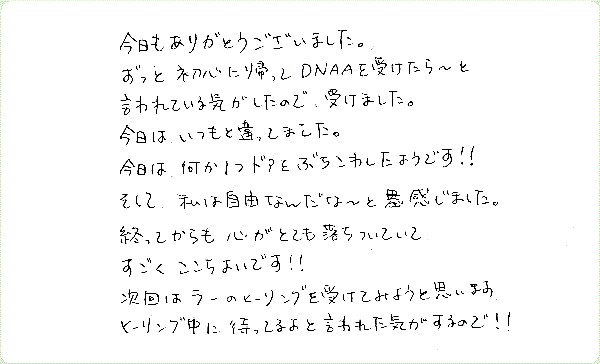 今日もありがとうございました。
ずっと 初心に帰って DNAAを受けたら〜と
言われている気がしたので、受けました。
今日は、いつもと違ってました。
今日は、何か1つドアをぶちこわしたようです!!
そして、私は自由なんだな〜と 感じました。
終ってからも 心がとても落ちついていて
すごく ここちよいです!!
次回は ラーのヒーリングを受けてみようと思います
ヒーリング中に 待ってるよと言われた気がするので!!